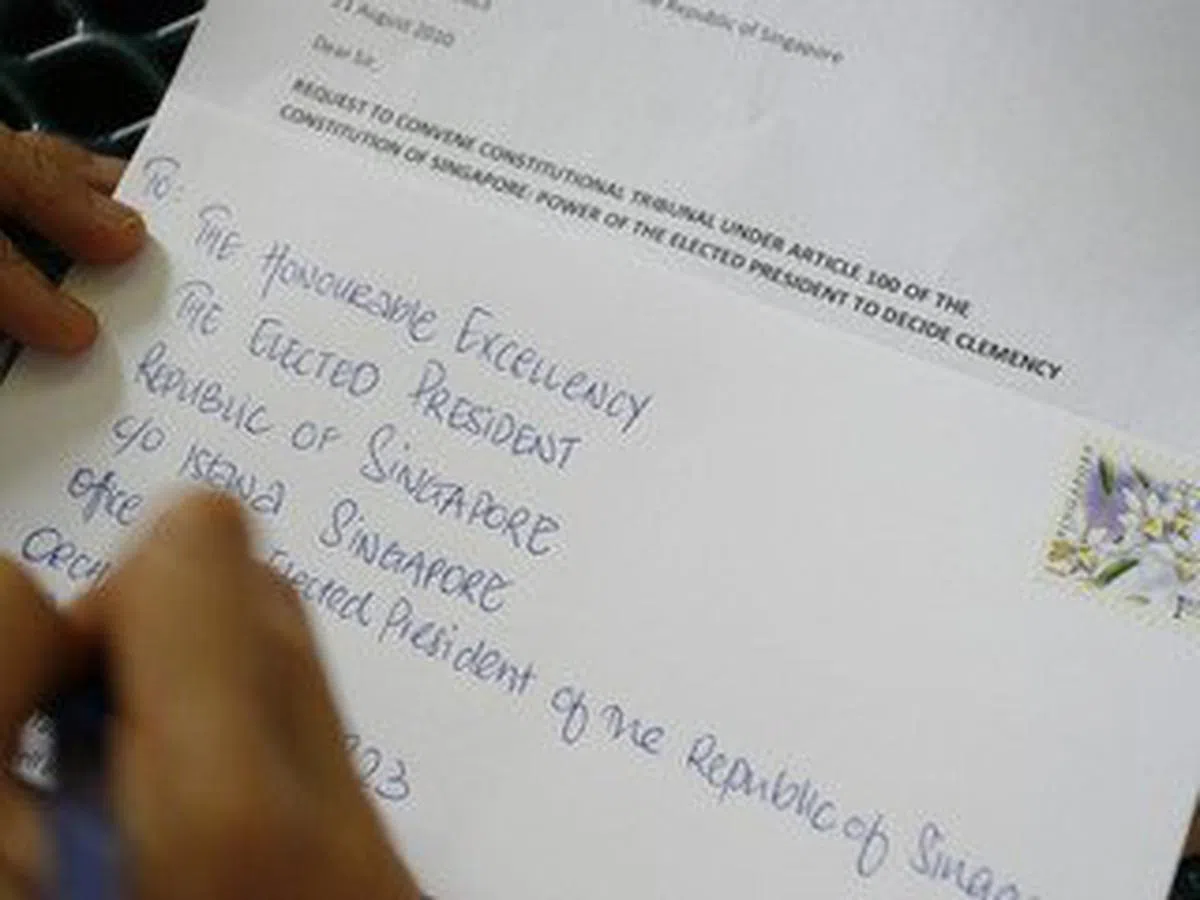 Republic of Singapore
21 August 2010
Dear Sir,
REQUEST TO CONVENE CONSTITUTIONAL TRIBUNAL UNDER ARTICLE 100 OF THE
CONSTITUTION OF SINGAPORE: POWER OF THE ELECTED PRESIDENT TO DECIDE CLEMENCY
TO: THE HONOURABLE EXCELLENCY
THE ELECTED PRESIDENT
REPUBLIC OF SINGAPORE
c/o ISTANA SINGAPORE
office Elected President of the Republic of Singa
ORCH